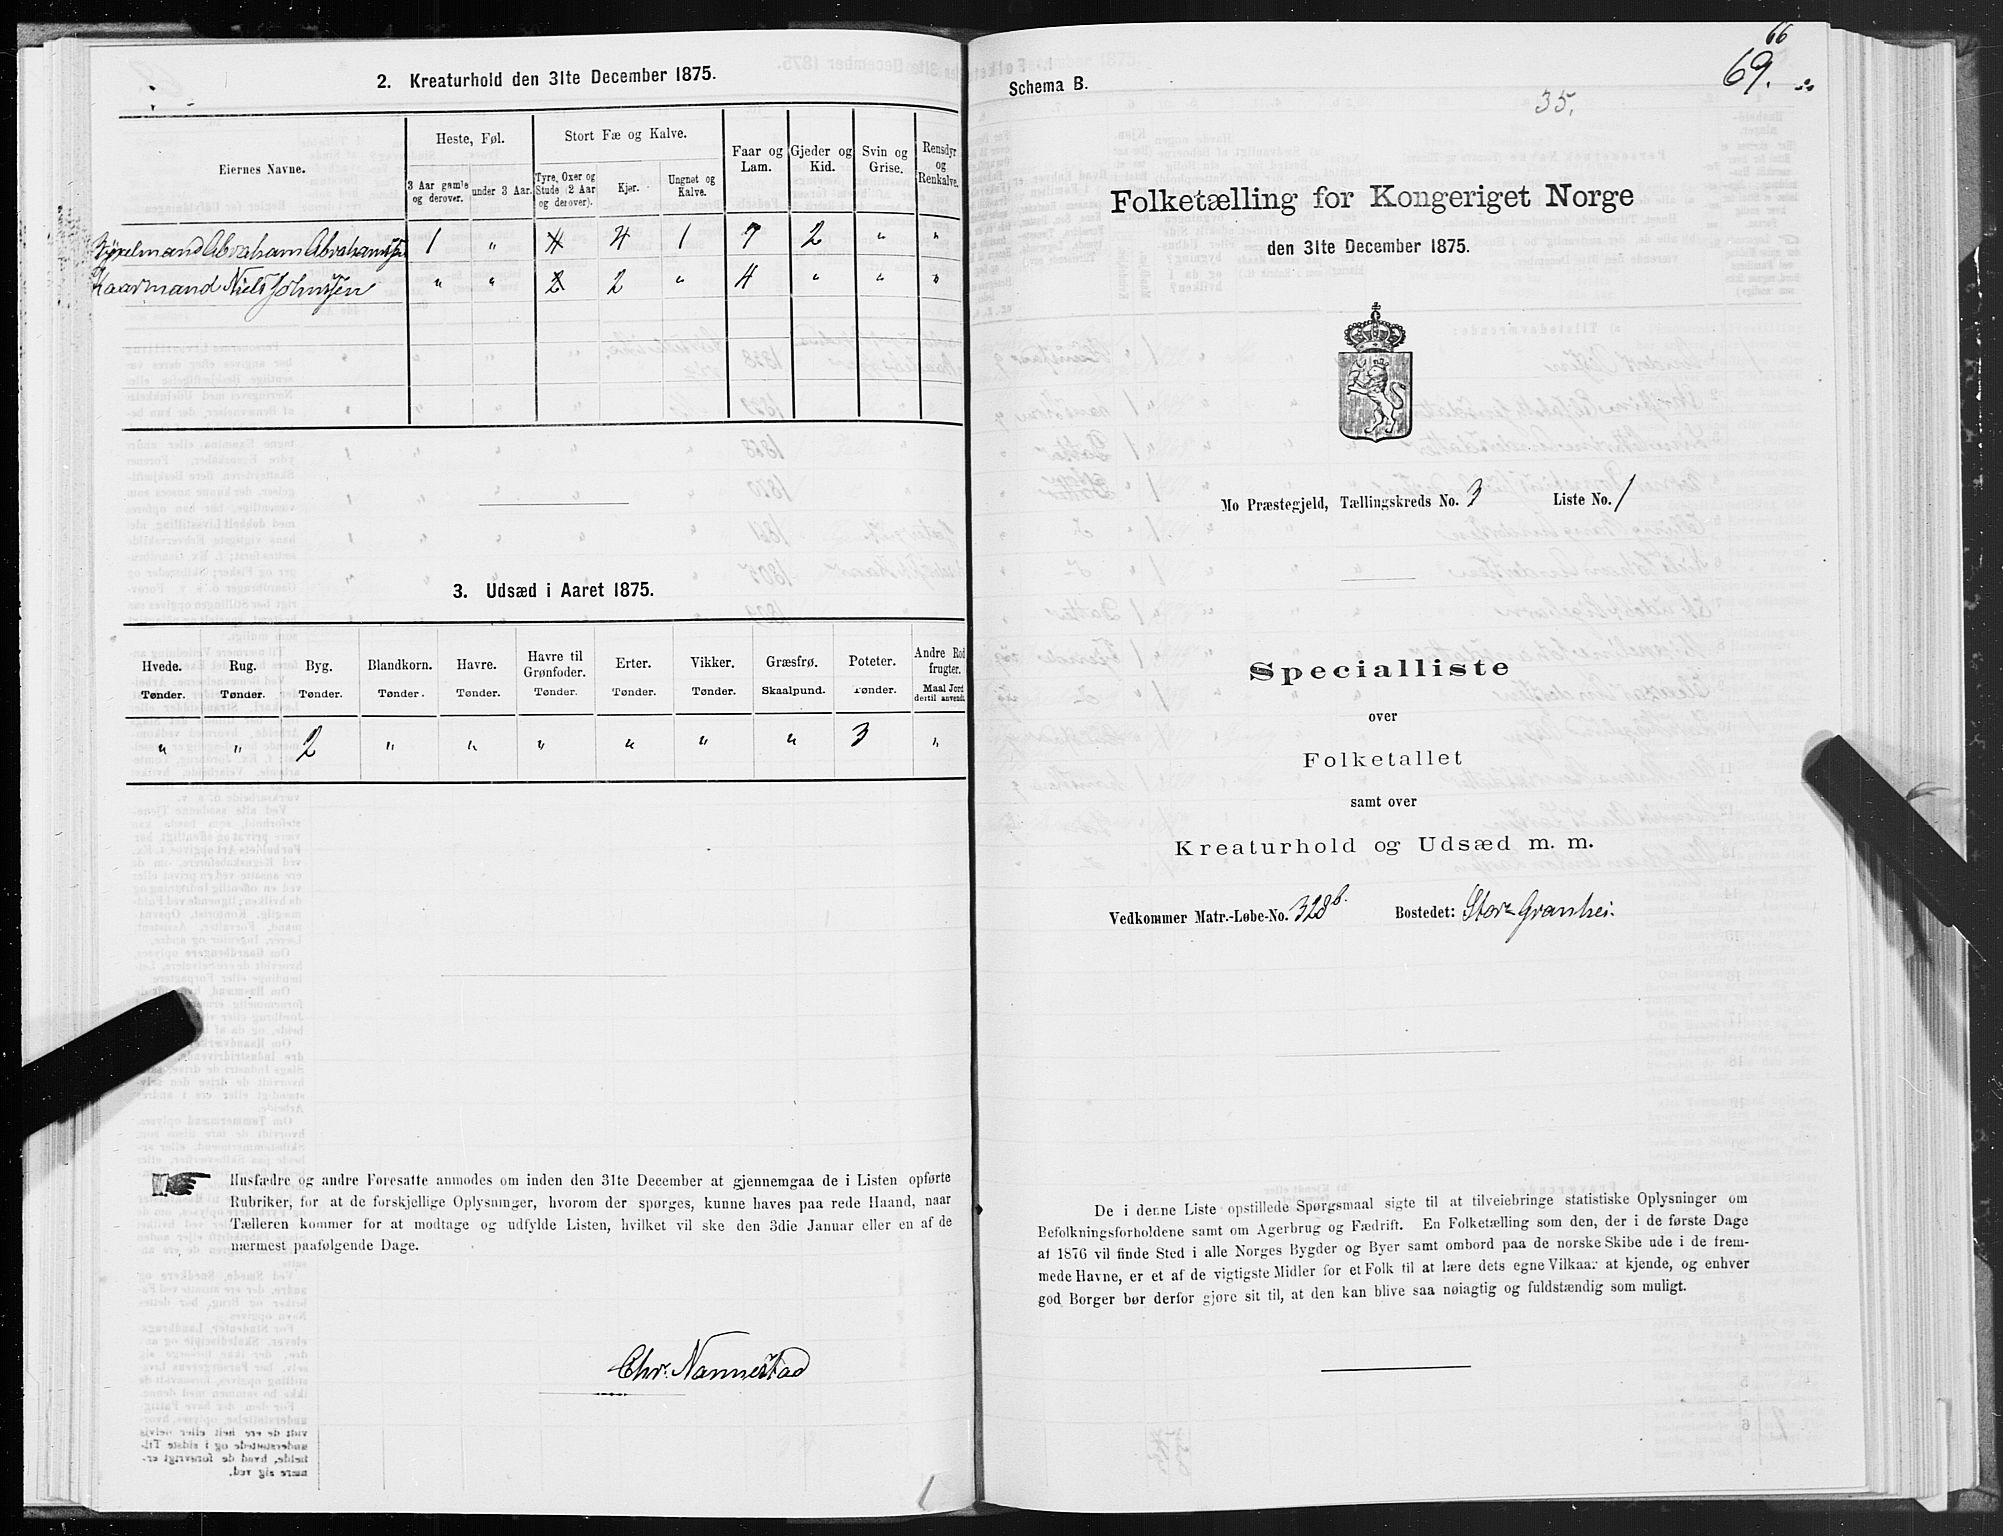 2. Kreaturhold den 31te December 1875.
Eiernes Navne.
Heste, Føl.
Stort Fæ og Kalve.
Faar og Lam.
Gjeder og Kid.
Svin og Grise.
Rensdyr og Renkalve.
3 Aar gamle og derover.
under 3 Aar.
Tyre, Oxer og Stude (2 Aar og derover).
Kjør.
Ungnøt og Kalve.
Abraham Abrahamsen 1 " 4 4 1 7 2 " "
Kaarmand Niels Johnssen " " 2 2 " 4 " " "
3. Udsæd i Aaret 1875.
Hvede. Rug. Byg. Blandkorn. Havre. Havre til Grønfoder. Erter. Vikker. Græsfrø. Poteter. Andre Rodfrugter.
Tønder. Tønder. Tønder. Tønder. Tønder. Tønder. Tønder. Tønder. Skaalpund. Tønder. Maal Jord dertil anvendt
" " 2 " " " " " " 3 "
Husfædre og andre Foresatte anmodes om inden den 31te December at gjennemgaa de i Listen opførte
Rubriker, for at de forskjellige Oplysninger, hvorom der spørges, kunne haves paa rede Haand, naar
Tælleren kommer for at modtage og udfylde Listen, hvilket vil ske den 3die Januar eller en af de
nærmest paafølgende Dage.
Chr. Nannestad
66
69.
Schema B.
35.
Folketælling for Kongeriget Norge
den 31te December 1875.
Mo Præstegjeld, Tællingskreds No. 3 Liste No. 1
Specialliste
over
Folketallet
samt over
Kreaturhold og Udsæd m. m.
Vedkommer Matr.-Løbe-No. 328b. Bostedet: Stor-Granhei.
De i denne Liste opstillede Spørgsmaal sigte til at tilveiebringe statistiske Oplysninger om
Befolkningsforholdene samt om Agerbrug og Fædrift. En Folketælling som den, der i de første Dage
af 1876 vil finde Sted i alle Norges Bygder og Byer samt ombord paa de norske Skibe ude i de frem-
mede Havne, er et af de vigtigste Midler for et Folk til at lære dets egne Vilkaar at kjende, og enhver
god Borger bør derfor gjøre sit til, at den kan blive saa nøiagtig og fuldstændig som muligt.